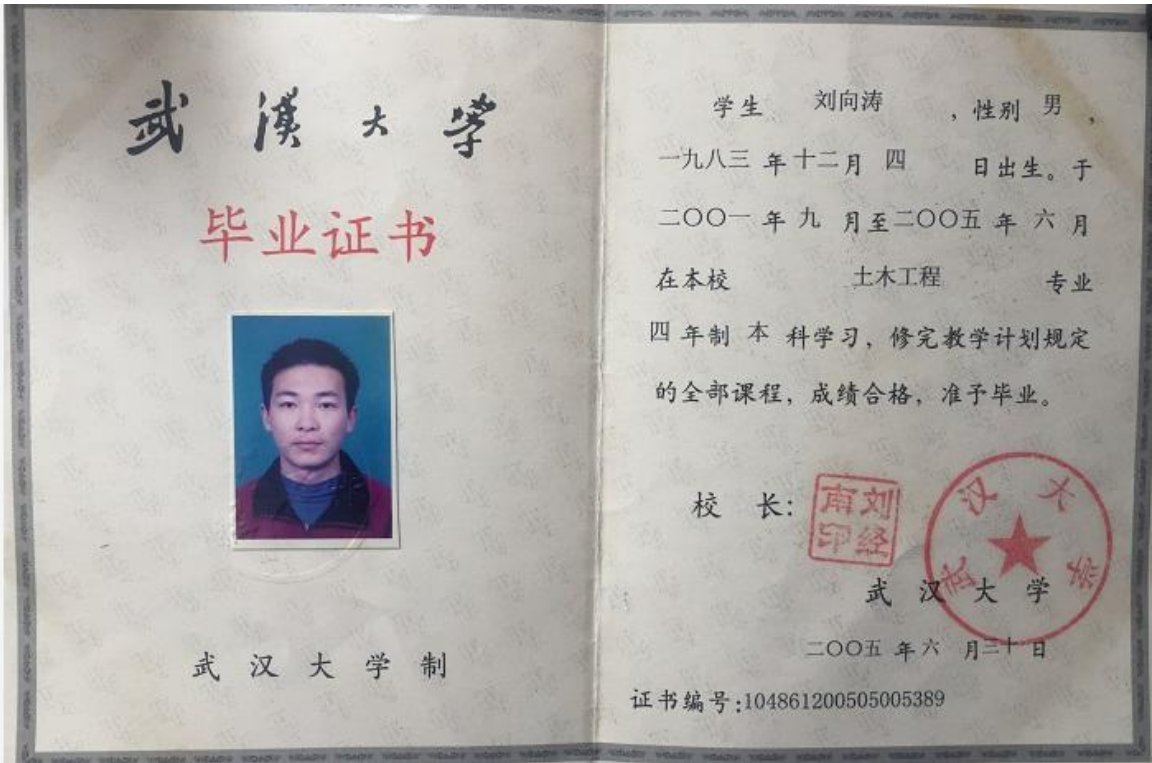 武漢大学
毕业证书
武汉大学制
学生 刘向涛 ，性别 男 ，
一九八三 年 十二 月 四 日出生。于
二〇〇一 年 九 月至 二〇〇五 年 六 月
在本校 土木工程 专业
四 年制 本 科学习，修完教学计划规定
的全部课程，成绩合格，准予毕业。
校 长：
刘经南印
武汉大学
武汉大学
二〇〇五 年 六 月 三十 日
证书编号：104861200505005389